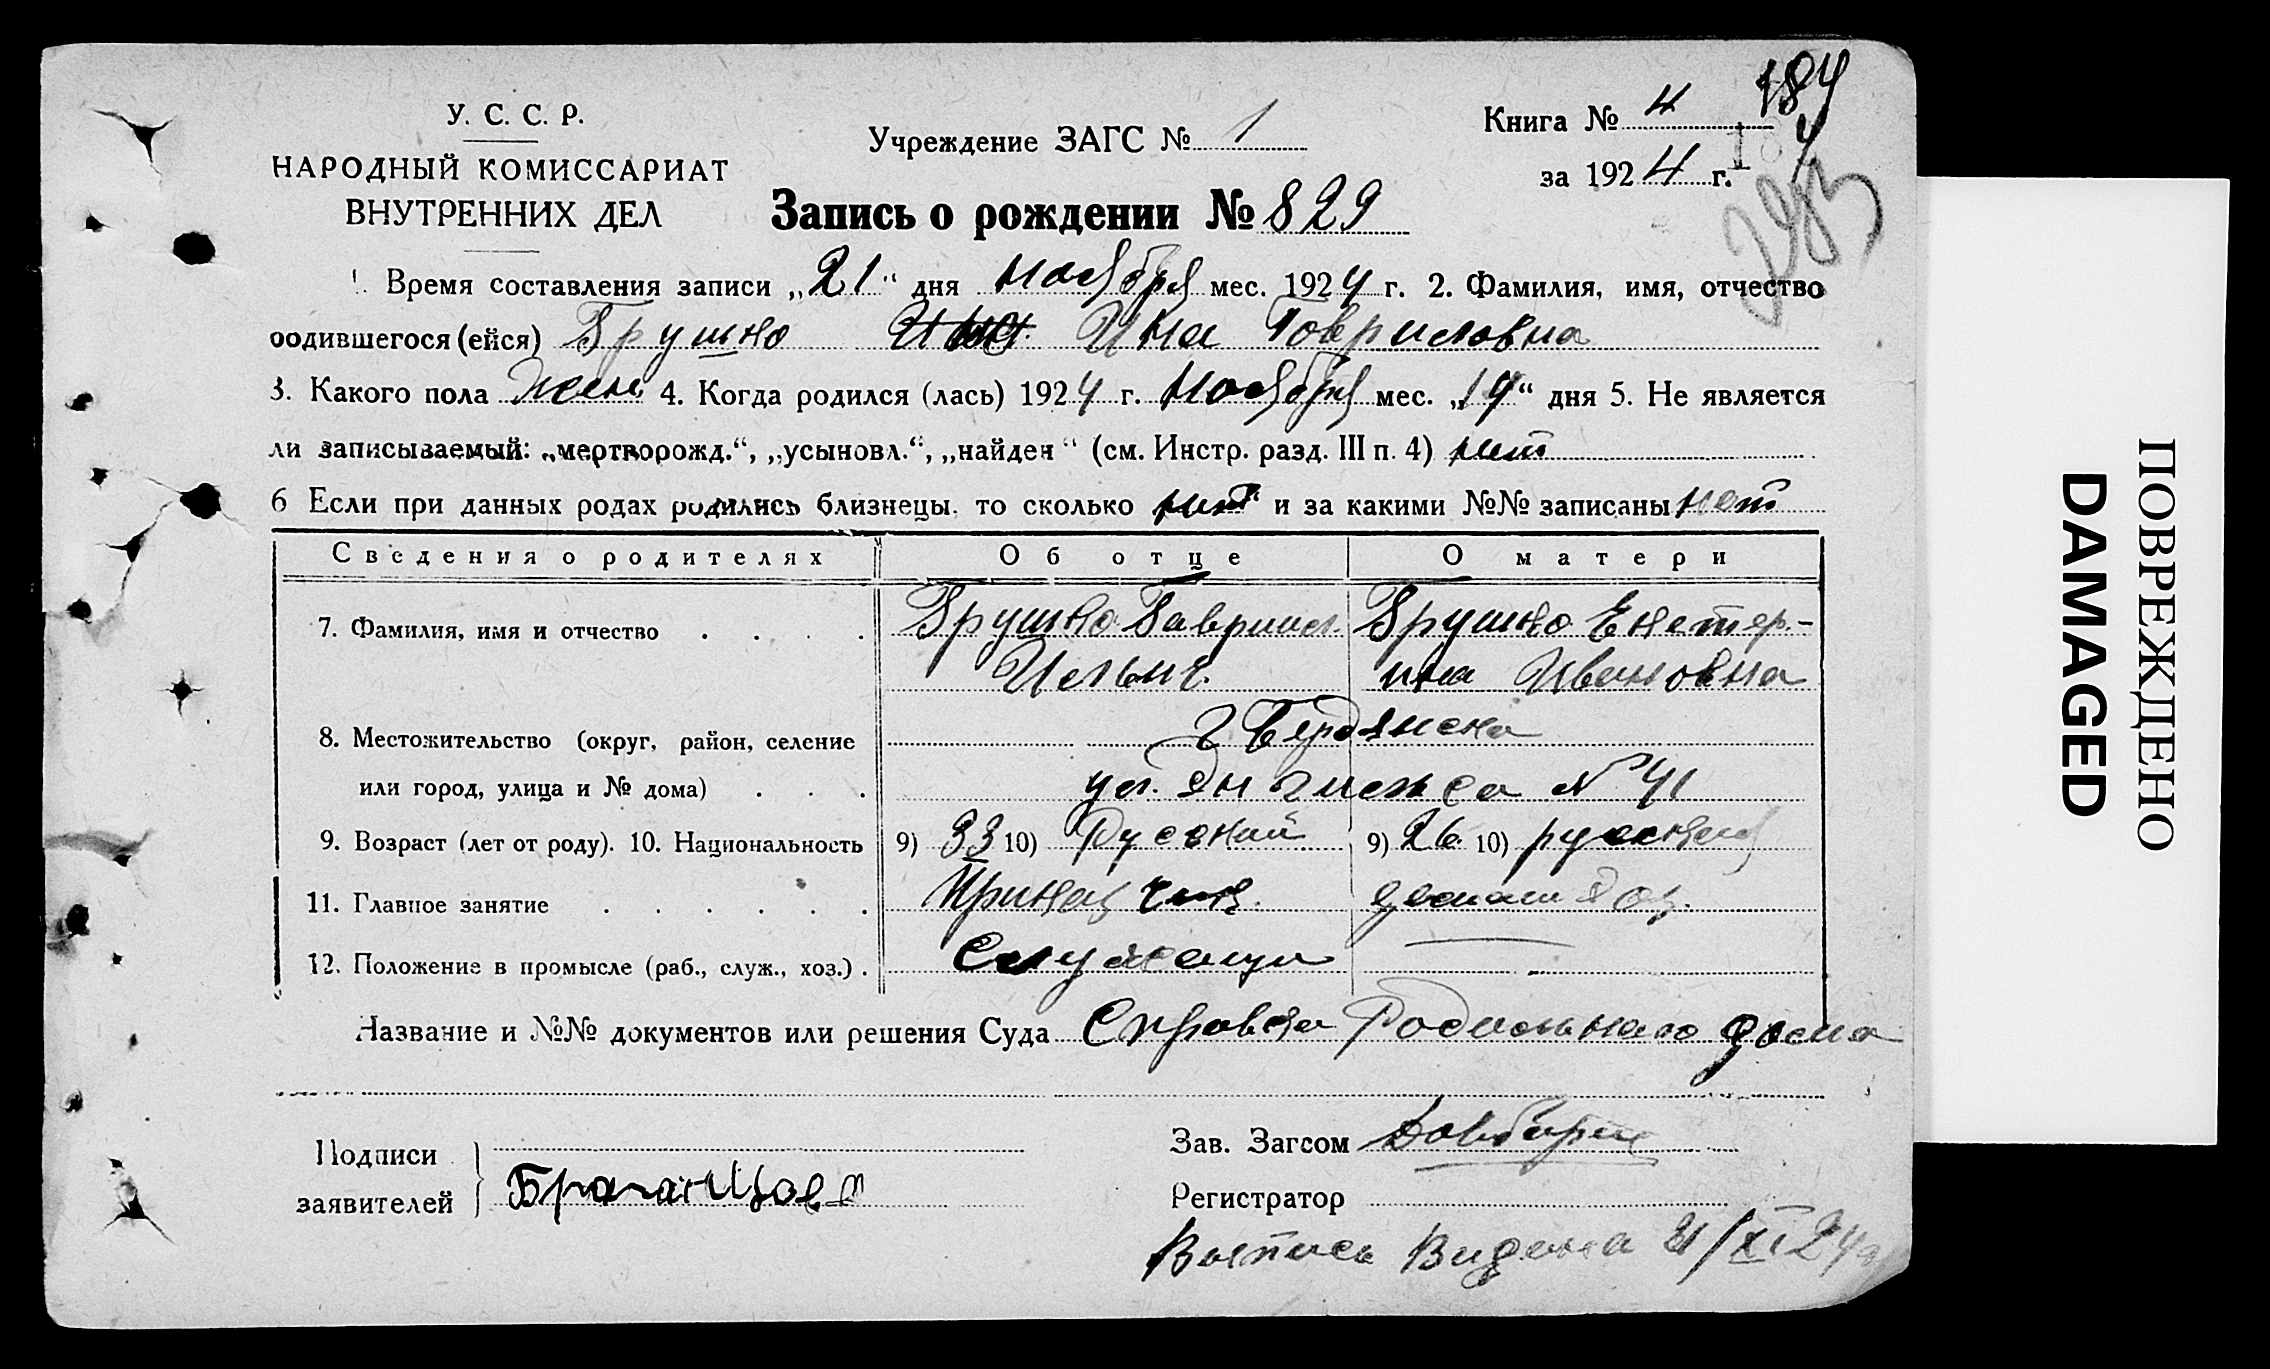 У. С. С. Р.
НАРОДНЫЙ КОМИССАРИАТ
ВНУТРЕННИХ ДЕЛ
Учреждение ЗАГС № 1
Книга № 4
184
за 1924 г.
Запись о рождении № 829
1. Время составления записи „21“ дня Ноября мес. 1924 г. 2. Фамилия, имя, отчество
родившегося (ейся) Грушко Ина Говриловна
3. Какого пола Жен 4. Когда родился (лась) 1924 г. Ноября мес. „14“ дня 5. Не является
ли записываемый: „мертворожд.“, „усыновл.“, „найден“ (см. Инстр. разд. III п. 4) нит
6 Если при данных родах родились близнецы, то сколько нит и за какими №№ записаны нет
Сведения о родителях Об отце О матери
7. Фамилия, имя и отчество . . . . Грушко Гавриил Грушко Екатер-
Ильич. ина Ивановна
8. Местожительство (округ, район, селение г Бердянска
или город, улица и № дома) . . . ул. Энгильса № 41
9. Возраст (лет от роду). 10. Национальность 9) 33 10) Русский 9) 26 10) русская
11. Главное занятие . . . . . . домашхоз.
12. Положение в промысле (раб., служ., хоз.) . Служащи
Название и №№ документов или решения Суда Справка Родильнаго дома
Подписи
заявителей
Зав. Загсом
Регистратор
Выпись Видана 21/XI 24г
ПОВРЕЖДЕНО
DAMAGED